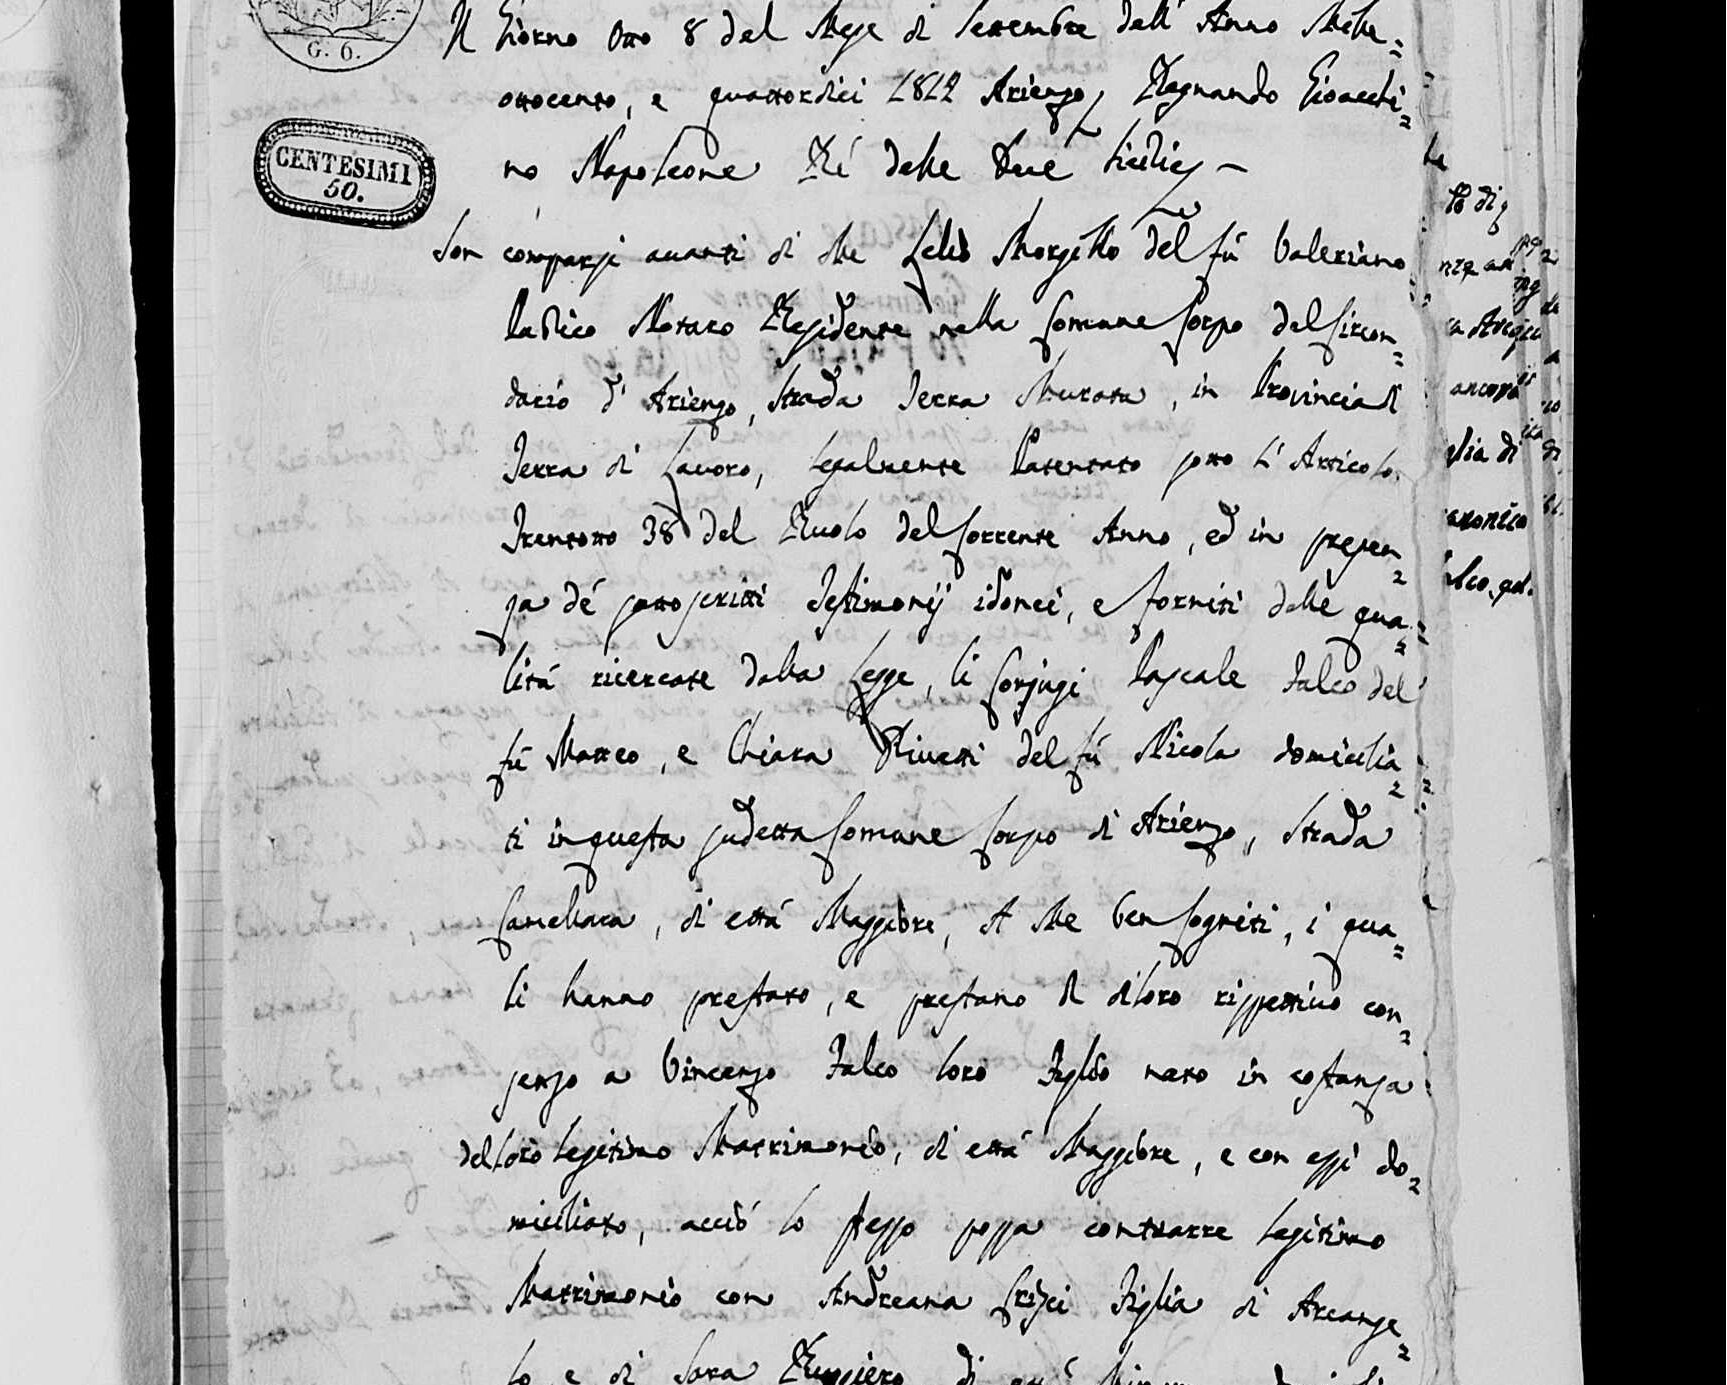 G. 6.
CENTESIMI
50.
Il Giorno Otto 8 del Mese di Settembre dell' Anno Mille=
ottocento, e quattordici 1814 Arienzo, Regnando Gioacchi=
no Napoleone Ré delle Due Sicilie, —
Son comparsi avanti di Me Lelio Morgillo del fú Valeriano
Publico Notaro Residente nella Comune Corpo del Circon=
dario d' Arienzo, Strada Terra Murata, in Provincia di
Terra di Lavoro, legalmente Patentato sotto l' Articolo
Trentotto 38 del Ruolo del Corrente Anno, ed in presen=
za dé sottoscritti Testimonij idonei, e forniti delle qua=
litá ricercate dalla Legge, li Conjugi Pascale Falco del
fú Matteo, e Chiara Rivetti del fú Nicola domicilia=
ti in questa sudetta Comune Corpo di Arienzo, Strada
Cancellara, di ettá Maggiore, A Me ben Cogniti, i qua=
li hanno prestato, e prestano il di loro rispettivo con=
senzo a Vincenzo Falco loro Figlio nato in costanza
del loro legitimo Matrimonio, di ettá Maggiore, e con essi do=
miciliato, acció lo stesso possa contrarre legitimo
Matrimonio con Andreana Crisci Figlia di Arcange=
lo, e di Sara Ruggiero di
to di
ancora
glia di
anonico